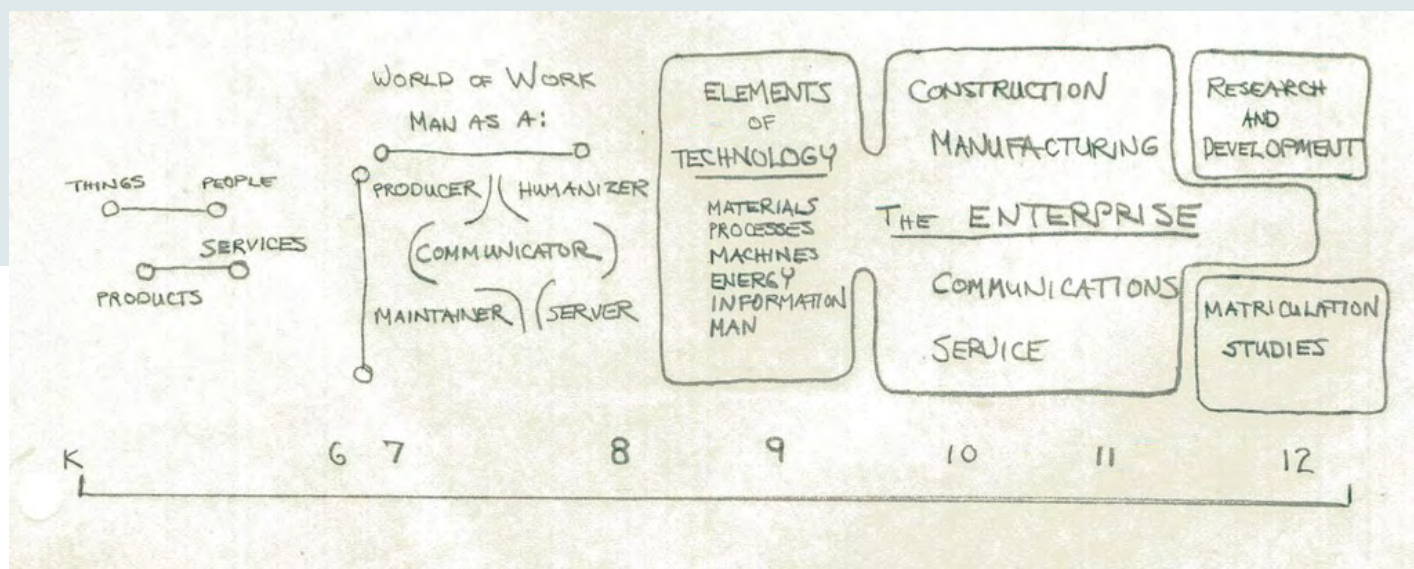 THINGS PEOPLE
SERVICES
PRODUCTS
WORLD OF WORK
MAN AS A:
PRODUCER HUMANIZER
(COMMUNICATOR)
MAINTAINER SERVER
ELEMENTS
OF
TECHNOLOGY
MATERIALS
PROCESSES
MACHINES
ENERGY
INFORMATION
MAN
CONSTRUCTION
MANUFACTURING
THE ENTERPRISE
COMMUNICATIONS
SERVICE
RESEARCH
AND
DEVELOPMENT
MATRICULATION
STUDIES
K 6 7 8 9 10 11 12